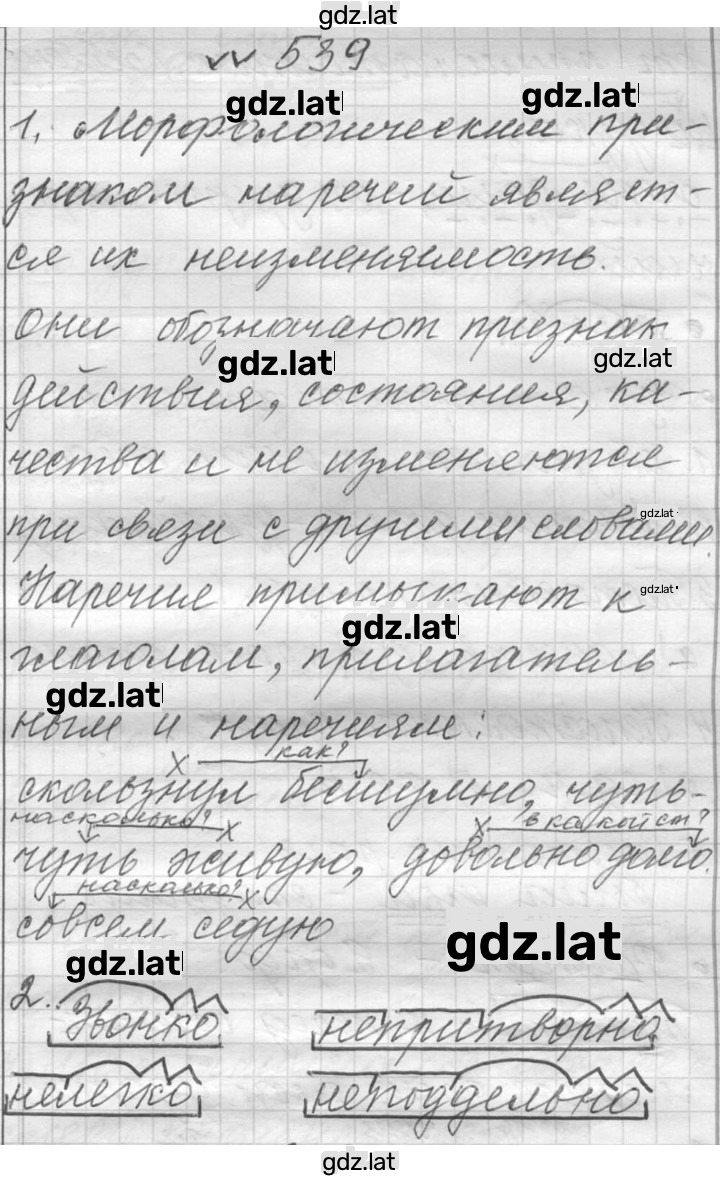 gdz.lat
№ 539
gdz.lat gdz.lat
1. Морфологическим при-
знаком наречий являет-
ся их неизменяемость.
Они обозначают признак
gdz.lat gdz.lat
действия, состояния, ка-
чества и не изменяются
gdz.lat
при связи с другими словами.
gdz.lat
Наречие примыкают к
gdz.lat
глаголам, прилагатель-
gdz.lat
ным и наречиям:
х как?
скользнул бесшумно, чуть-
насколько? х х в какой ст?
чуть живую, довольно долго.
насколько? х
совсем седую
gdz.lat
gdz.lat
2. Звонко непритворно
нелегко неподдельно
gdz.lat